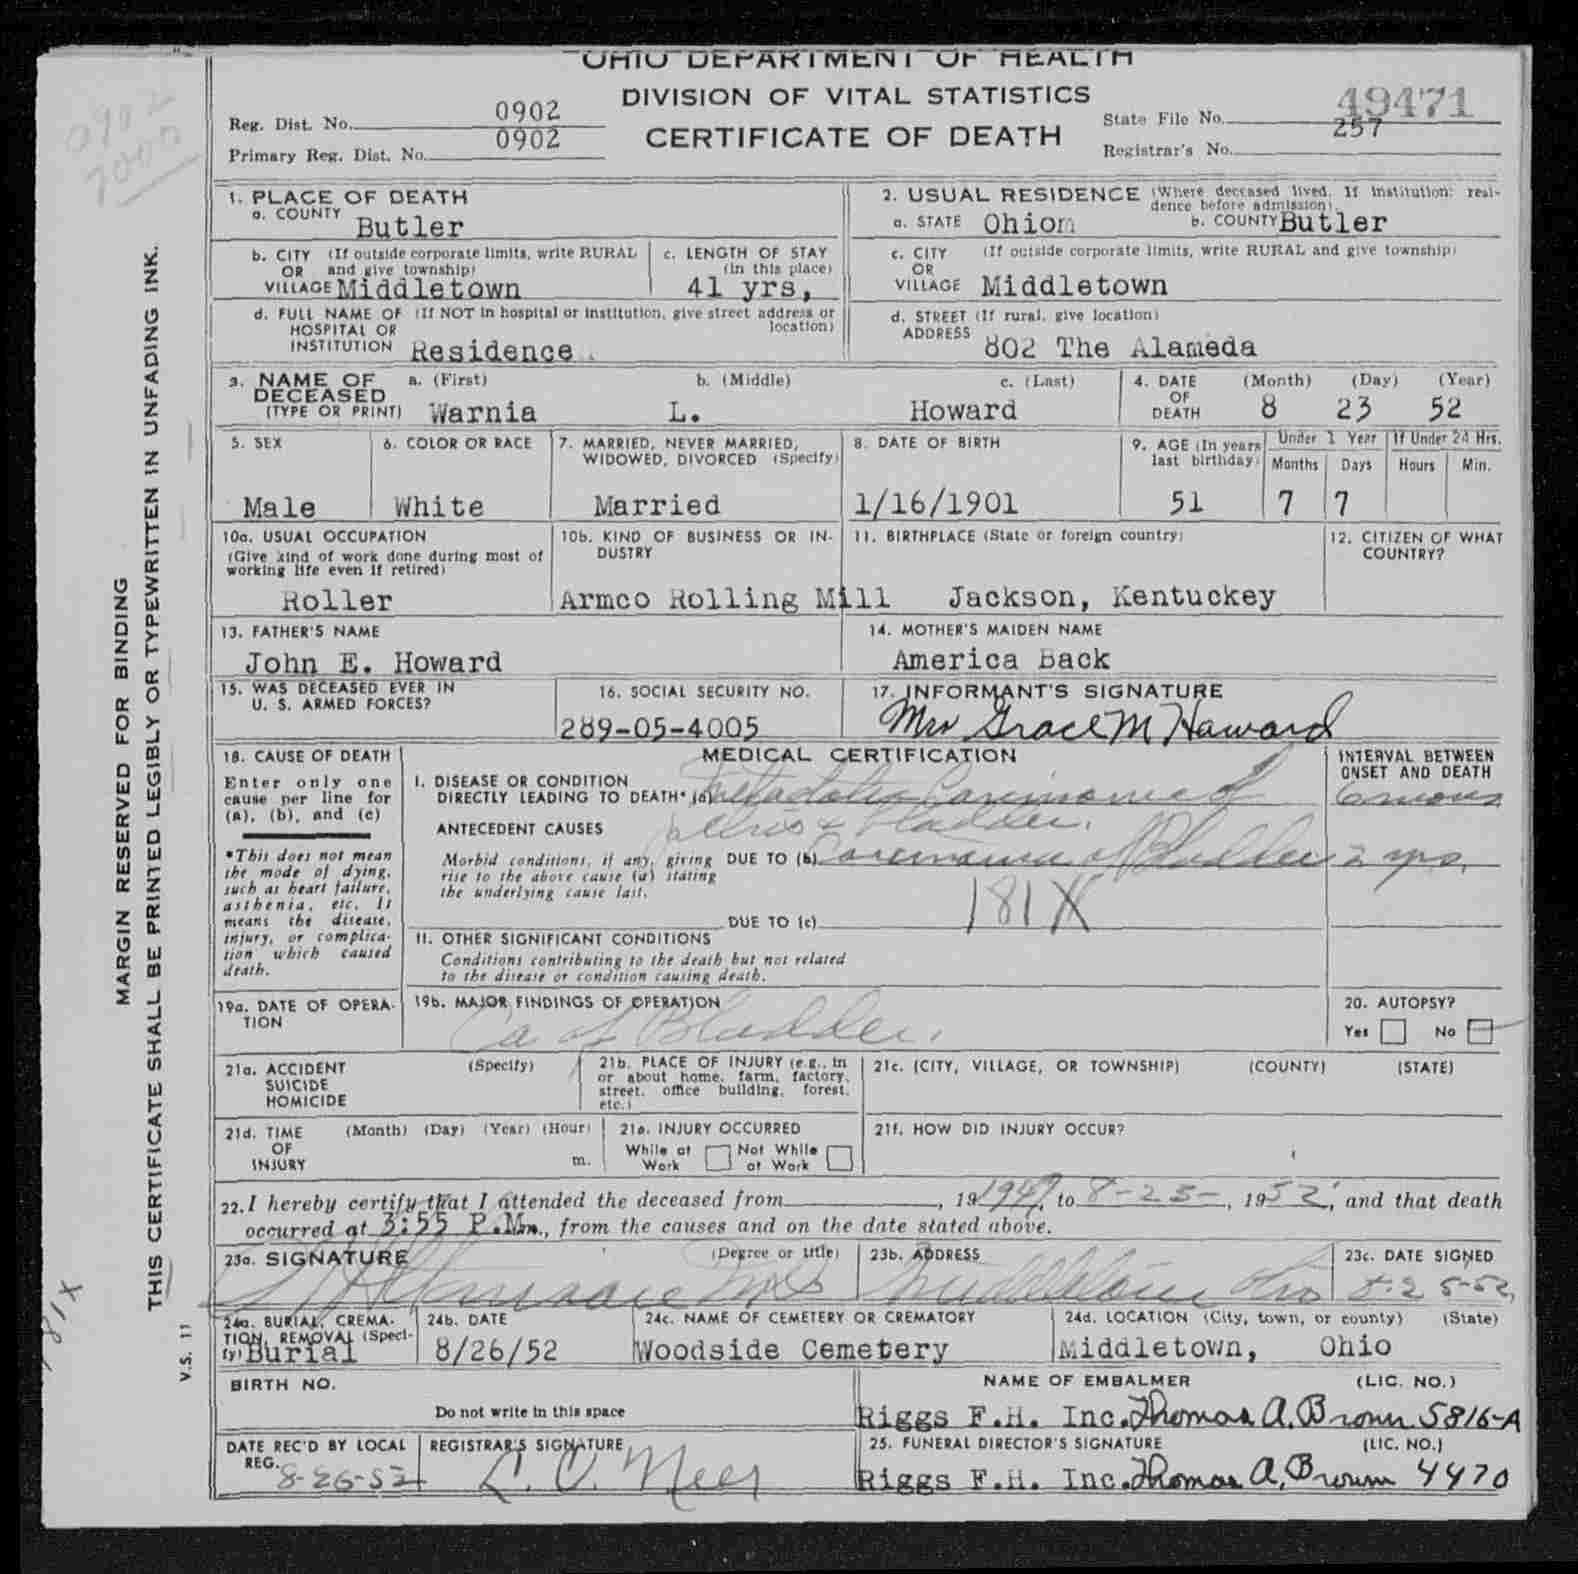 OHIO DEPARTMENT OF HEALTH
DIVISION OF VITAL STATISTICS
CERTIFICATE OF DEATH
0902
7000
Reg. Dist. No. 0902
Primary Reg. Dist. No. 0902
State File No. 49471
Registrar's No. 257
MARGIN RESERVED FOR BINDING
THIS CERTIFICATE SHALL BE PRINTED LEGIBLY OR TYPEWRITTEN IN UNFADING INK.
V.S. 11
181X
1. PLACE OF DEATH
a. COUNTY Butler
2. USUAL RESIDENCE (Where deceased lived. If institution: resi-
dence before admission).
a. STATE Ohiom b. COUNTY Butler
b. CITY (If outside corporate limits, write RURAL
OR and give township)
VILLAGE Middletown
c. LENGTH OF STAY
(in this place)
41 yrs,
c. CITY (If outside corporate limits, write RURAL and give township)
OR
VILLAGE Middletown
d. FULL NAME OF (If NOT in hospital or institution, give street address or
HOSPITAL OR location)
INSTITUTION Residence
d. STREET (If rural, give location)
ADDRESS 802 The Alameda
3. NAME OF DECEASED
(TYPE OR PRINT)
a. (First) b. (Middle) c. (Last)
Warnia L. Howard
4. DATE OF DEATH (Month) (Day) (Year)
8 23 52
5. SEX
Male
6. COLOR OR RACE
White
7. MARRIED, NEVER MARRIED,
WIDOWED, DIVORCED (Specify)
Married
8. DATE OF BIRTH
1/16/1901
9. AGE (In years
last birthday)
51
Under 1 Year
Months Days
7 7
If Under 24 Hrs.
Hours Min.
10a. USUAL OCCUPATION
(Give kind of work done during most of
working life even if retired)
Roller
10b. KIND OF BUSINESS OR IN-
DUSTRY
Armco Rolling Mill
11. BIRTHPLACE (State or foreign country)
Jackson, Kentuckey
12. CITIZEN OF WHAT
COUNTRY?
13. FATHER'S NAME
John E. Howard
14. MOTHER'S MAIDEN NAME
America Back
15. WAS DECEASED EVER IN
U. S. ARMED FORCES?
16. SOCIAL SECURITY NO.
289-05-4005
17. INFORMANT'S SIGNATURE
Mrs Grace M Howard
18. CAUSE OF DEATH
Enter only one
cause per line for
(a), (b), and (c)
*This does not mean
the mode of dying,
such as heart failure,
asthenia, etc. It
means the disease,
injury, or complica-
tion which caused
death.
MEDICAL CERTIFICATION
I. DISEASE OR CONDITION
DIRECTLY LEADING TO DEATH* (a) Carcinoma of
pelvis & bladder.
ANTECEDENT CAUSES
Morbid conditions, if any, giving
rise to the above cause (a) stating
the underlying cause last.
DUE TO (b) Carcinoma of Bladder
181X
DUE TO (c)
INTERVAL BETWEEN
ONSET AND DEATH
2 yrs.
II. OTHER SIGNIFICANT CONDITIONS
Conditions contributing to the death but not related
to the disease or condition causing death.
19a. DATE OF OPERA-
TION
19b. MAJOR FINDINGS OF OPERATION
Ca of Bladder.
20. AUTOPSY?
Yes No
21a. ACCIDENT (Specify)
SUICIDE
HOMICIDE
21b. PLACE OF INJURY (e.g., in
or about home, farm, factory,
street, office building, forest,
etc.)
21c. (CITY, VILLAGE, OR TOWNSHIP) (COUNTY) (STATE)
21d. TIME (Month) (Day) (Year) (Hour)
OF
INJURY m.
21e. INJURY OCCURRED
While at Work Not While at Work
21f. HOW DID INJURY OCCUR?
22. I hereby certify that I attended the deceased from , 19 1949, to 8-23-, 1952, and that death
occurred at 3:55 P.M m., from the causes and on the date stated above.
23a. SIGNATURE (Degree or title)
MD
23b. ADDRESS
Middletown Ohio
23c. DATE SIGNED
8-25-52,
24a. BURIAL, CREMA-
TION, REMOVAL (Speci-
fy) Burial
24b. DATE
8/26/52
24c. NAME OF CEMETERY OR CREMATORY
Woodside Cemetery
24d. LOCATION (City, town, or county) (State)
Middletown, Ohio
BIRTH NO.
Do not write in this space
NAME OF EMBALMER (LIC. NO.)
Riggs F.H. Inc. Thomas A. Brown 5816-A
DATE REC'D BY LOCAL
REG. 8-26-52
REGISTRAR'S SIGNATURE
25. FUNERAL DIRECTOR'S SIGNATURE (LIC. NO.)
Riggs F.H. Inc. Thomas A. Brown 4470